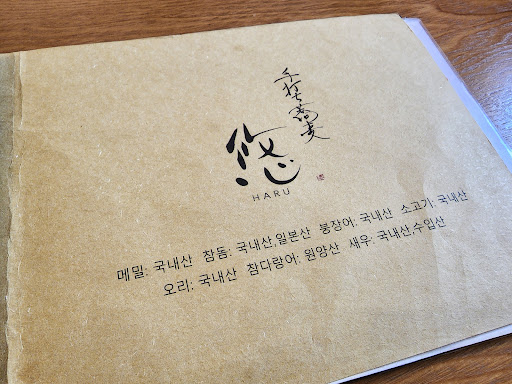 手打ち蕎麦
悠
HARU
메밀: 국내산 참돔: 국내산,일본산 붕장어: 국내산 소고기: 국내산
오리: 국내산 참다랑어: 원양산 새우: 국내산,수입산